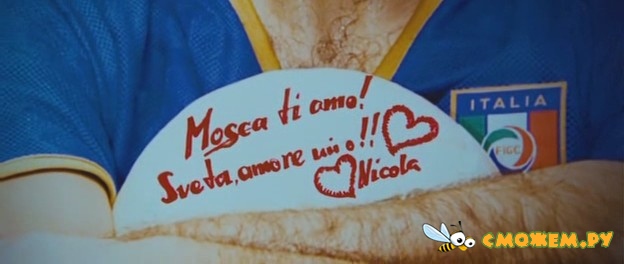 Mosca ti amo!
Sveta, amore mio!!
Nicola
ITALIA
FIGC
СМОЖЕМ.РУ